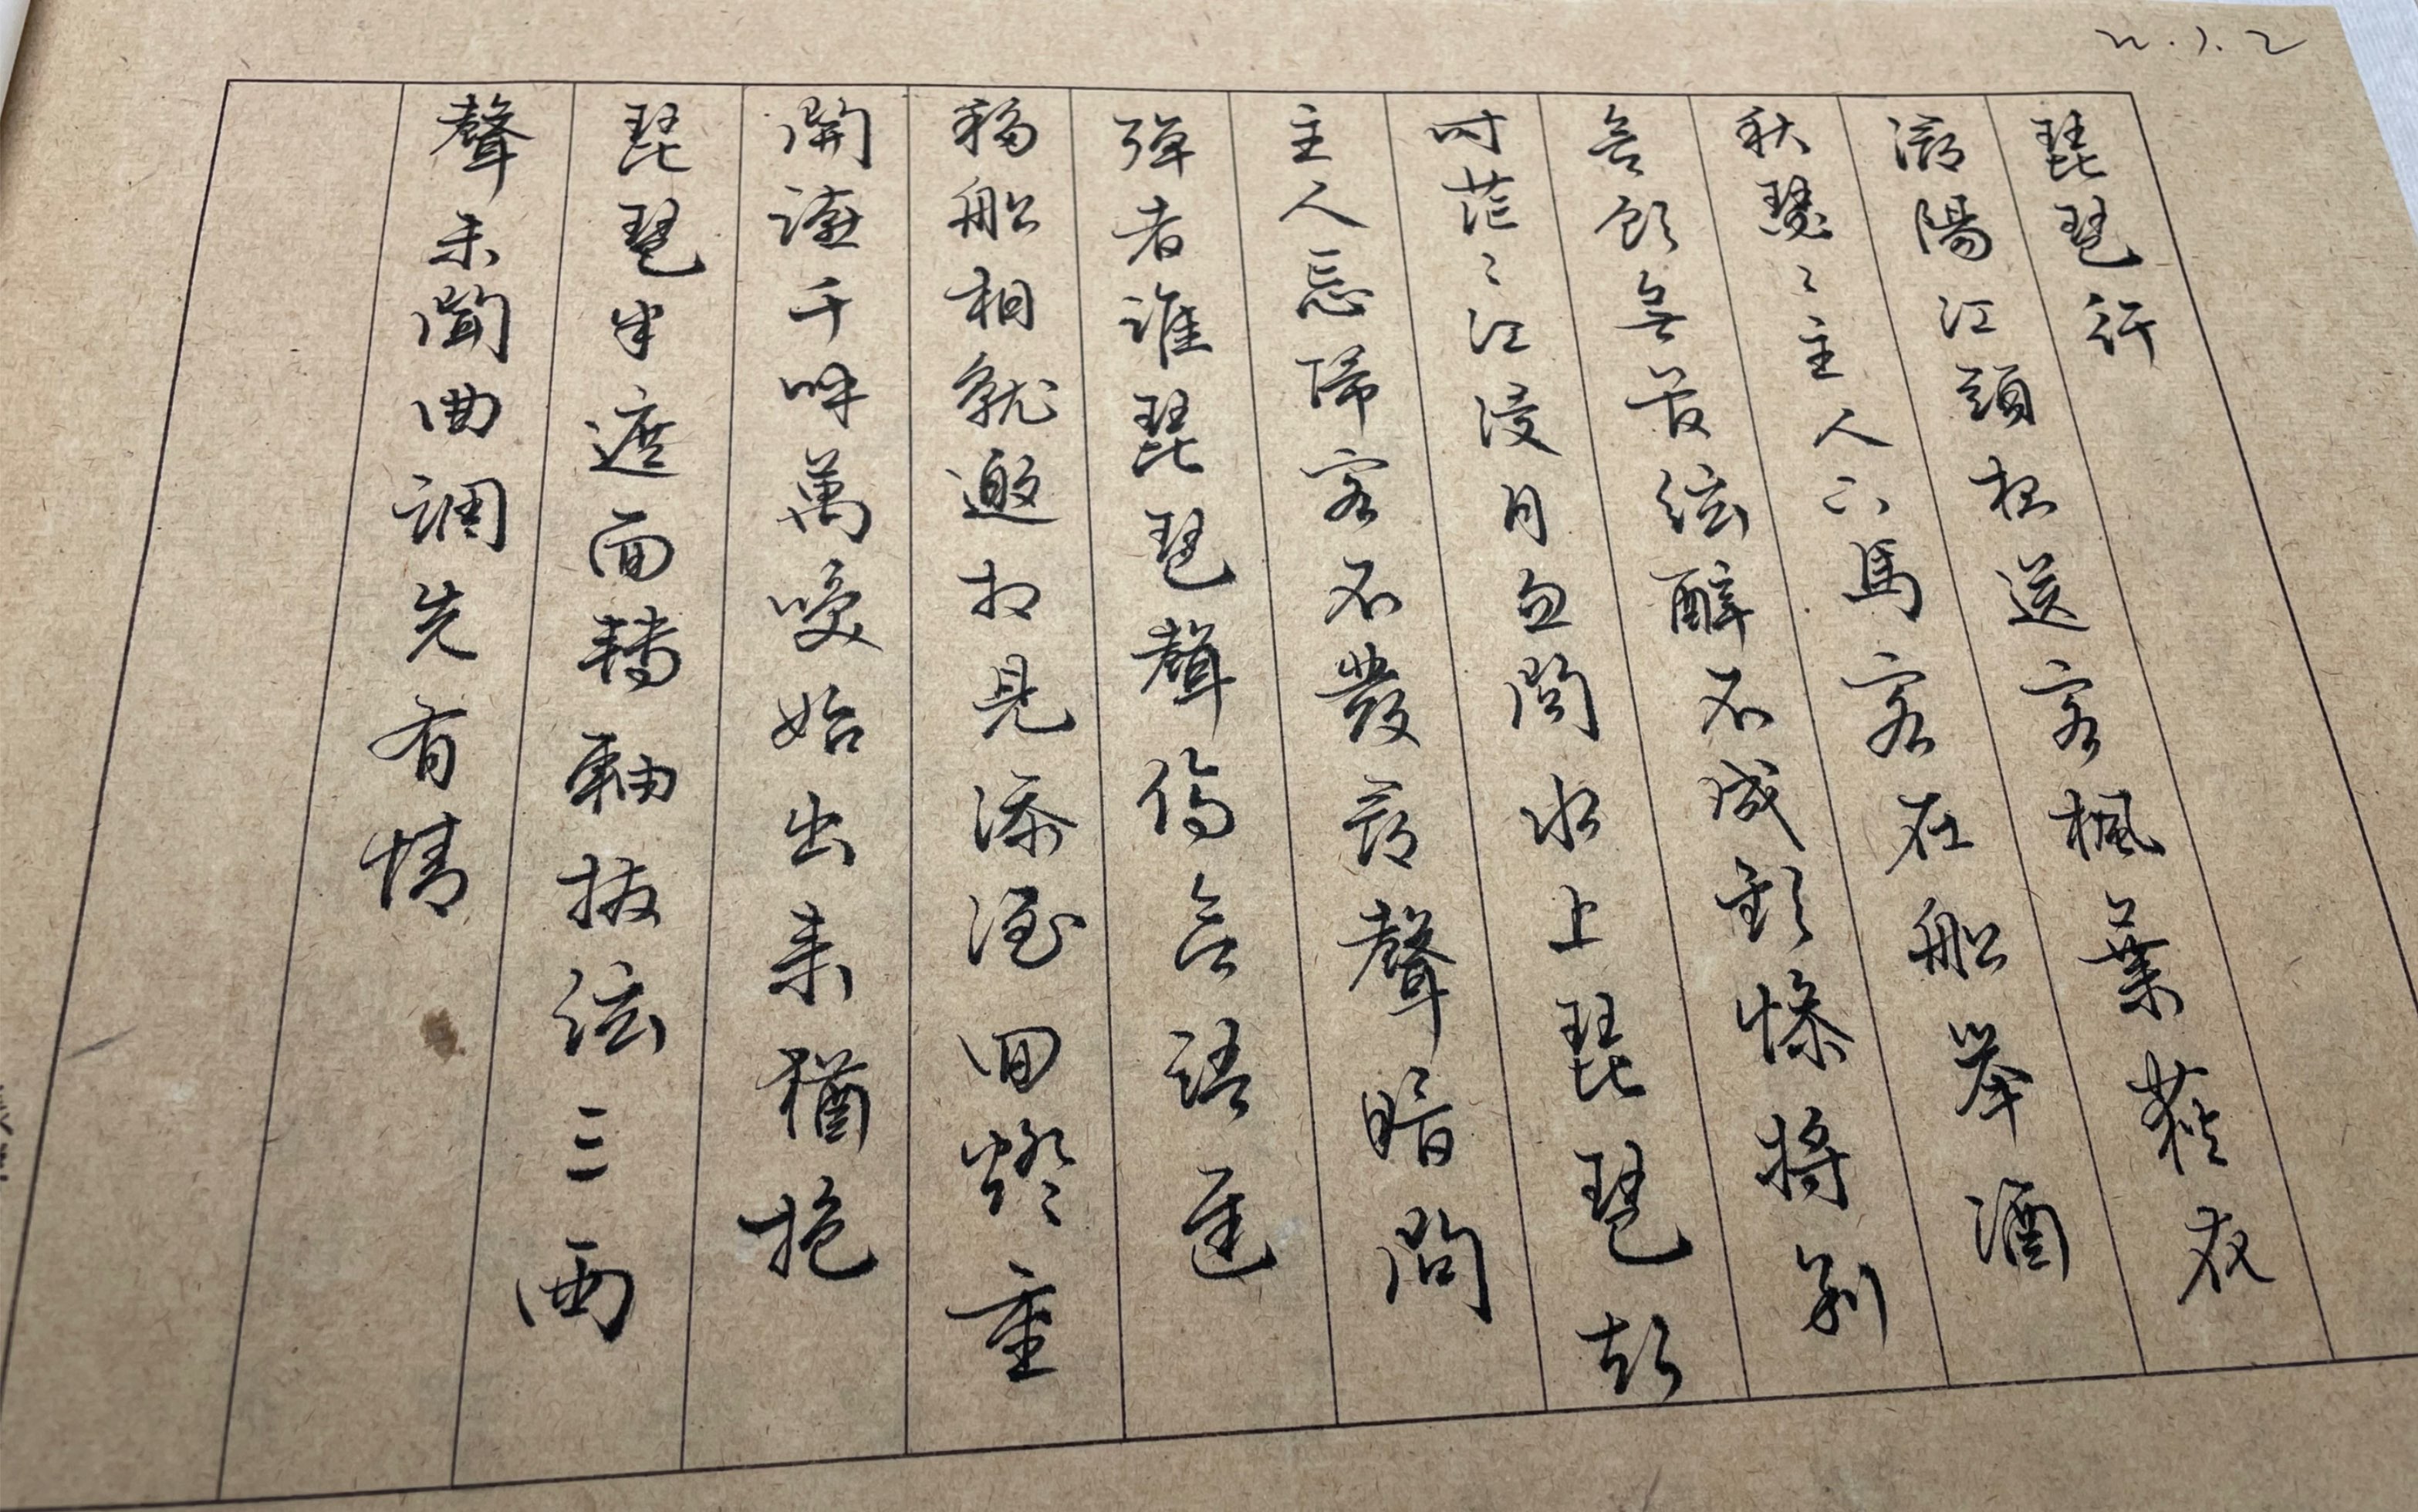 琵琶行
潯陽江頭夜送客楓葉荻花
秋瑟〻主人下馬客在船舉酒
欲飲無管絃醉不成歡慘將別
时茫〻江浸月忽聞水上琵琶聲
主人忘歸客不發尋聲暗問
彈者誰琵琶聲停欲語遲
移船相就邀相見添酒回燈重
開讌千呼萬喚始出来猶抱
琵琶半遮面轉軸撥絃三兩
聲未聞曲調先有情